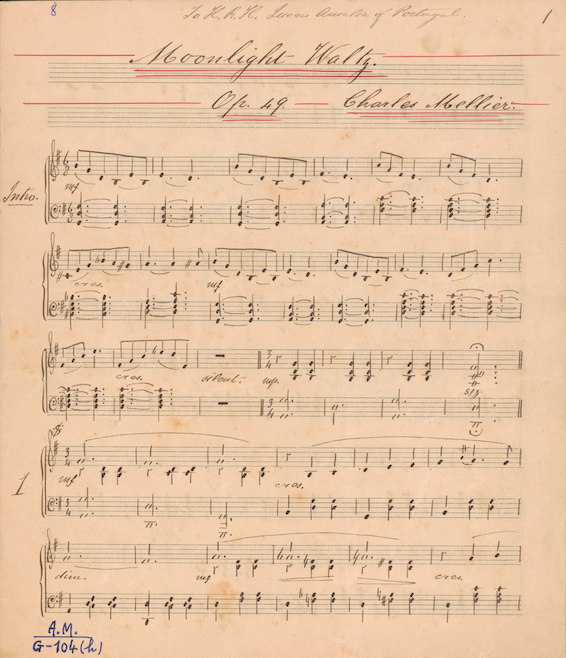 8
To H.R.H. Queen Amelia of Portugal.
1
Moonlight Waltz.
Op. 49. Charles Mellier.
Intro.
mf
cres.
mf
cres.
silent.
mp.
sfz
1
mf
cres.
dim.
mf
cres.
A.M.
G-104(h)